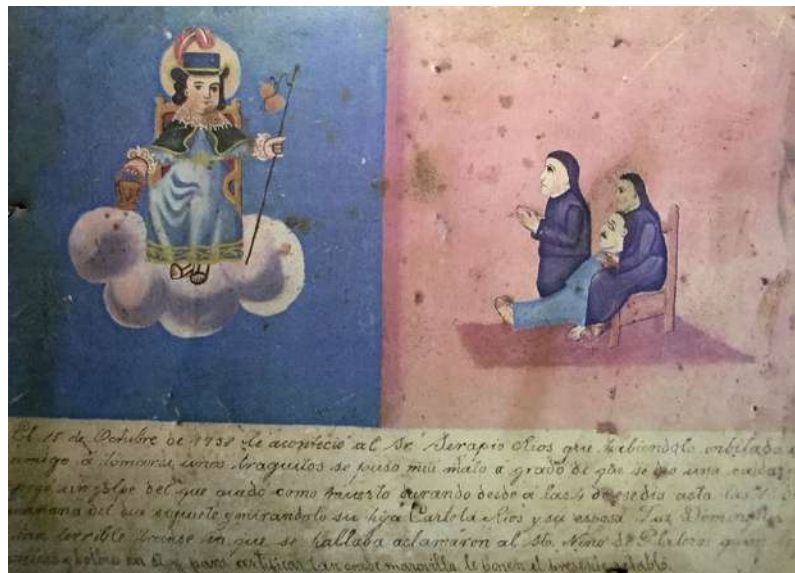 El 15 de Octubre de 1938 le acontecio al Sr Serapio Rios que habiendolo inbitado
amigo a tomarse unos traguitos se puso mui malo a grado de que se dio una caida y
pego un golpe del que quedo como muerto durando desde a las 4 de acta las
mañana del dia siguiete y mirandolo su hija Carlota Rios y su esposa Luz
terrible trance in que se hallaba aclamaron al Sto. Niño de Plateros quien
y para certificar tan grande maravilla le ponen el presente retablo.